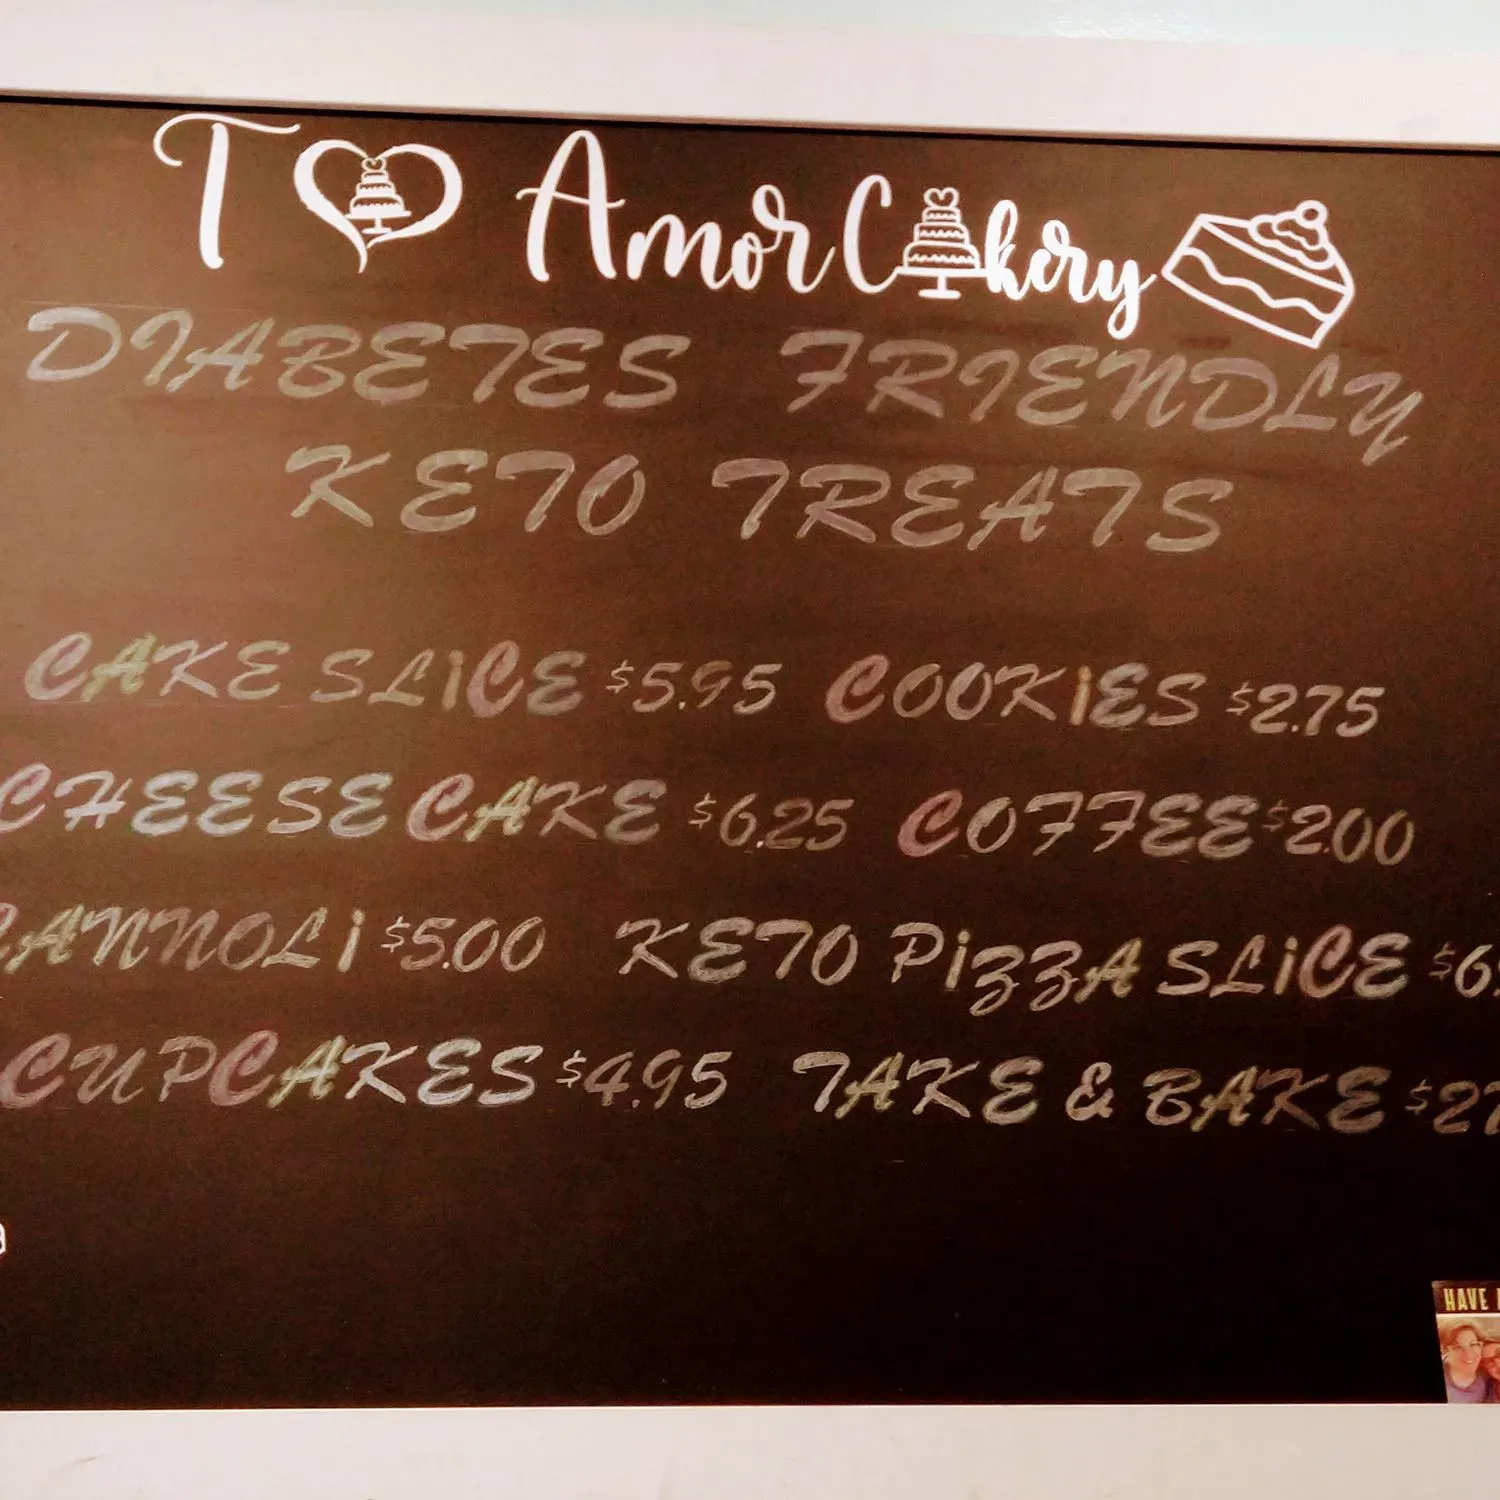 T Amor Cakery
DIABETES FRIENDLY
KETO TREATS
CAKE SLiCE $5.95 COOKiES $2.75
CHEESECAKE $6.25 COFFEE $2.00
CANNOLi $5.00 KETO PiZZA SLiCE
CUPCAKES $4.95 TAKE & BAKE
HAVE